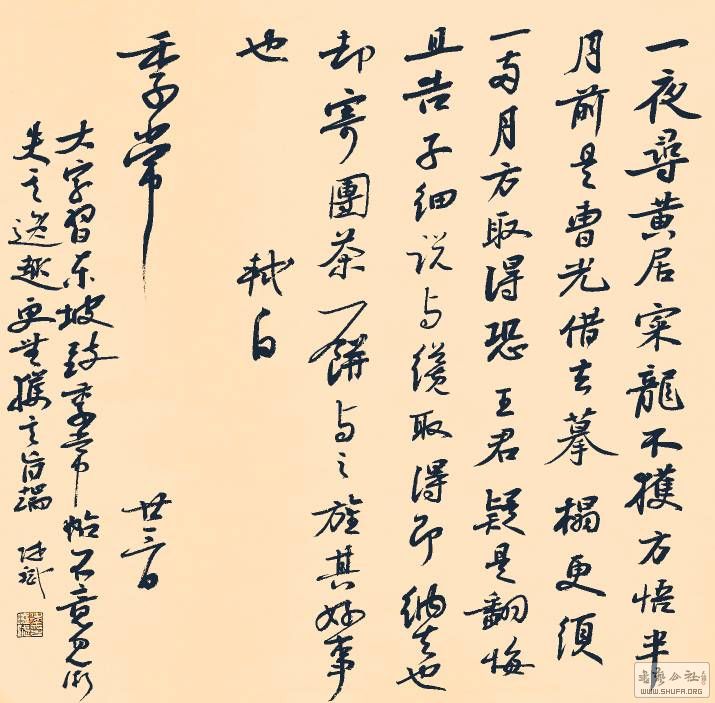 一夜尋黃居寀龍不獲方悟半
月前是曹光借去摹榻更須
一兩月方取得恐王君疑是翻悔
且告子細說与纔取得即納去也
却寄團茶一餅与之旌其好事
也　軾白
季常　廿三日
大字習東坡致季常帖不意見
失之逸趣更無獲言旨端
书法公社
WWW.SHUFA.ORG